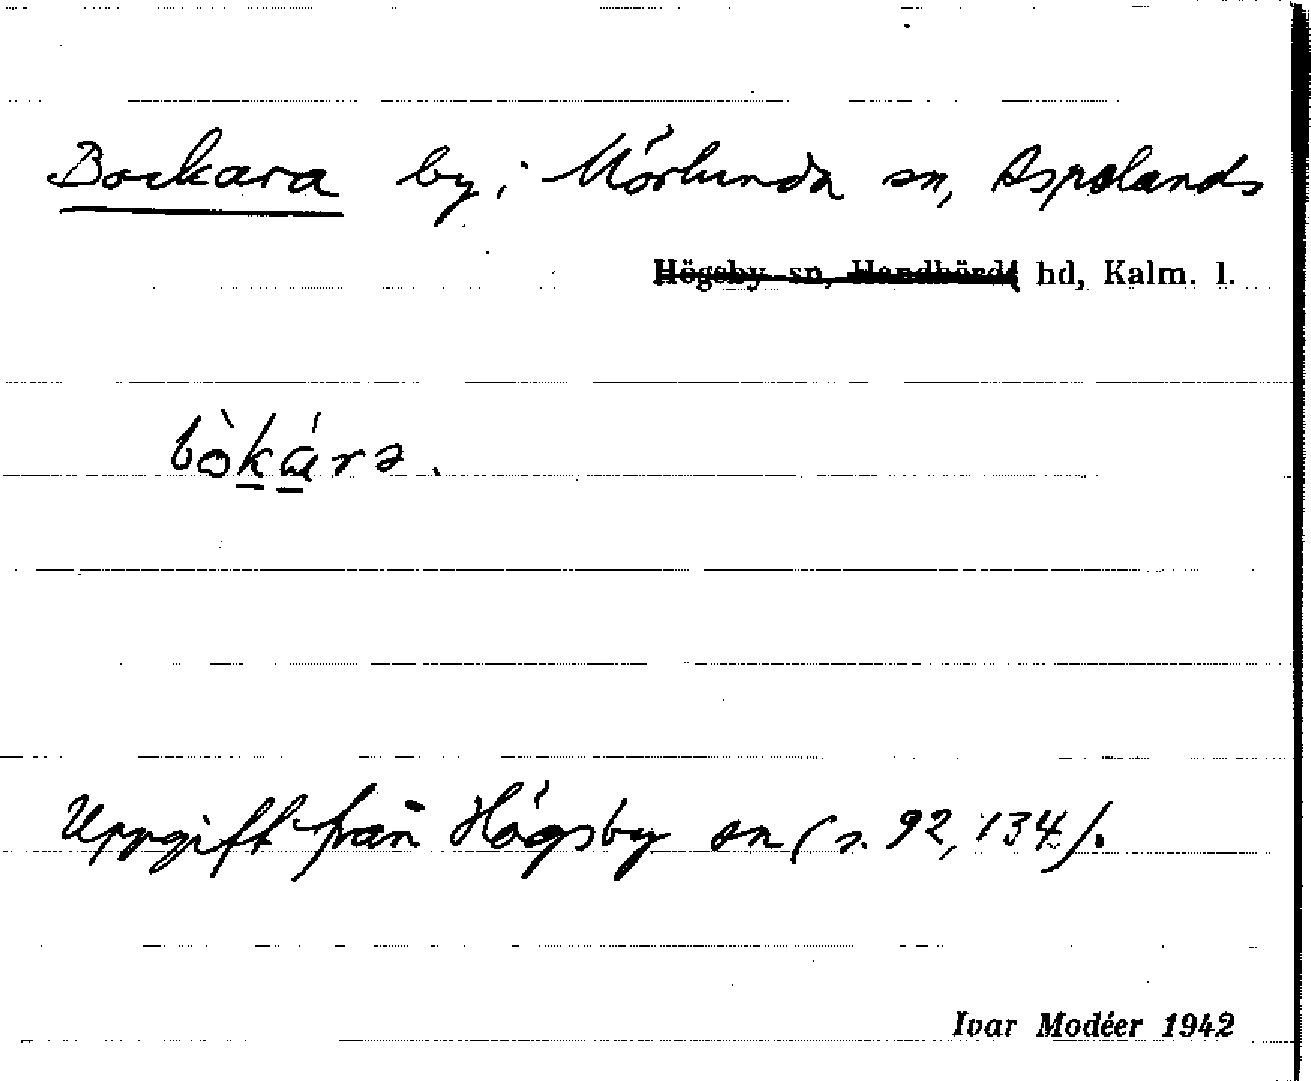 Bockara by i Mörlunda sn, Aspelands
Högsby sn, Handbörds hd, Kalm. l.
bòkárə.
Uppgift från Högsby sn (s. 92, 134).
Ivar Modéer 1942